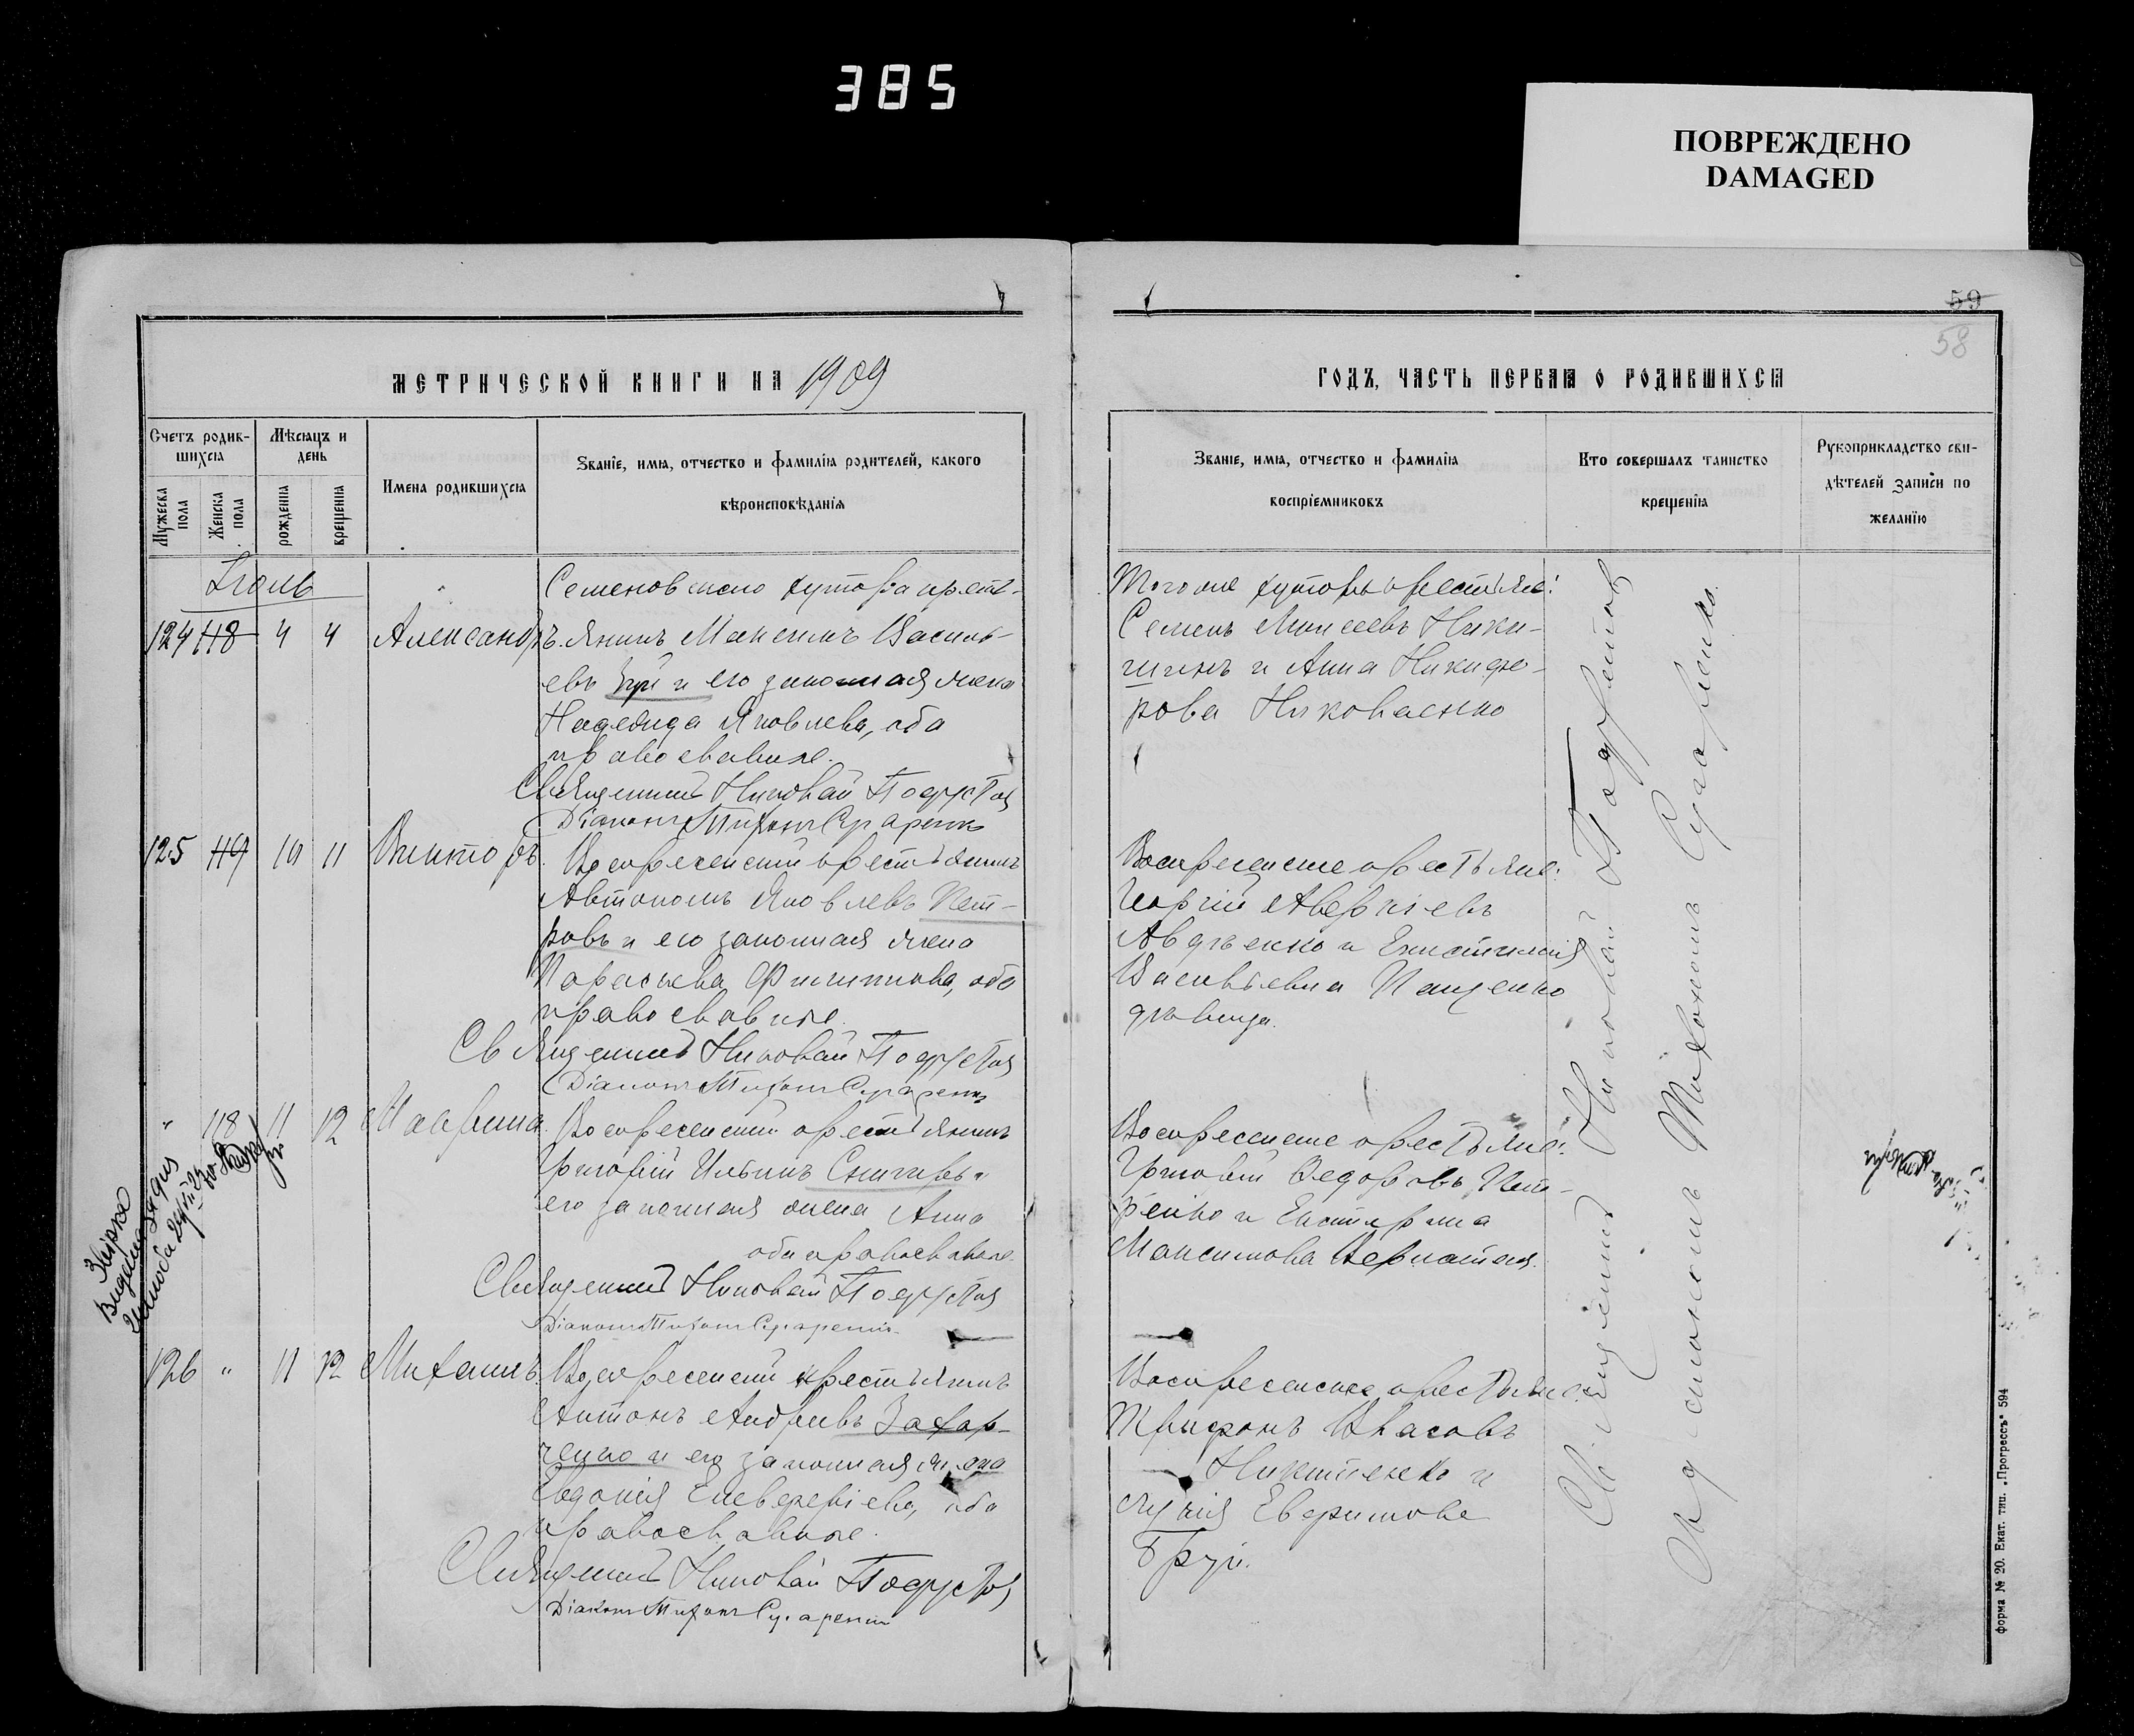 385
ПОВРЕЖДЕНО
DAMAGED
59
58
МЕТРИЧЕСКОЙ КНИГИ НА 1909
ГОДЪ, ЧАСТЬ ПЕРВАЯ О РОДИВШИХСЯ
Счетъ родив-
шихся
Мужеска пола
Женска пола
Мѣсяцъ и
день
рожденiя
крещенiя
Имена родившихся
Званiе, имя, отчество и фамилiя родителей, какого
вѣроисповѣданiя
Званiе, имя, отчество и фамилiя
воспрiемниковъ
Кто совершалъ таинство
крещенiя
Рукоприкладство сви-
дѣтелей записи по
желанiю
Iюль
124 118 4 4 Александръ.
Семеновскаго хутора кресть-
янинъ Максимъ Василь-
евъ и его законная жена
Надежда Яковлева, оба
православные.
Священникъ Николай
Дiаконъ Тихонъ
Того же хутора крестьяне:
Семенъ Моисеевъ Ники-
шинъ и Анна Никифо-
рова Николаенко
125 119 10 11 Викторъ.
Воскресенскiй крестьянинъ
Автономъ Яковлевъ Пет-
ровъ и его законная жена
Параскева Филиппова, оба
православные.
Священникъ Николай
Дiаконъ Тихонъ
Воскресенские крестьяне:
Георгiй Аверкiевъ
Авдѣенко и
Васильевна Пащенко
дѣвица.
" 118 11 12 Марина.
Воскресенскiй крестьянинъ
Григорiй Ильинъ Снигирь и
его законная жена Анна
оба православные.
Священникъ Николай
Дiаконъ Тихонъ
Воскресенские крестьяне:
Григорiй Федоровъ Пет-
ренко и Екатерина
Максимова
126 " 11 12 Михаилъ.
Воскресенскiй крестьянинъ
Антонъ Андреевъ Захар-
ченко и его законная жена
Евдокiя Елевферiева, оба
православные.
Священникъ Николай
Дiаконъ Тихонъ
Воскресенские крестьяне:
Трифонъ Власовъ
Никитенко и
Евфимова
Священникъ Николай
Тихонъ
форма № 20. Екат. тип. „Прогрессъ“ 594